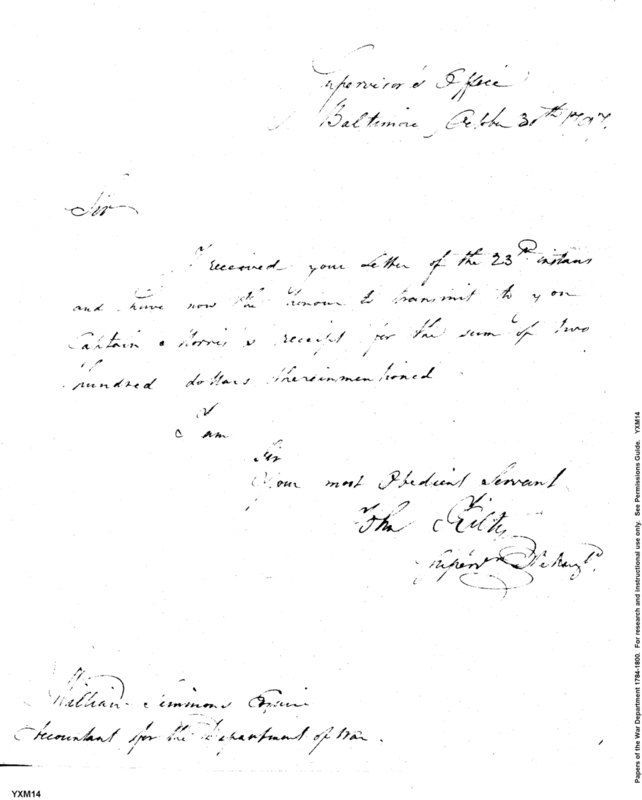 Supervisor's Office
Baltimore, October 30th 1797.
Sir
I received your Letter of the 23rd instant
and have now the honour to transmit to you
Captain Morris's receipt for the sum of two
hundred dollars thereinmentioned
I am
Sir
Your most Obedient Servant
John Kilty
Superv
William Simmons Esquire
Accountant for the Department of War.
Papers of the War Department 1784-1800. For research and instructional use only. See Permissions Guide. YXM14
YXM14